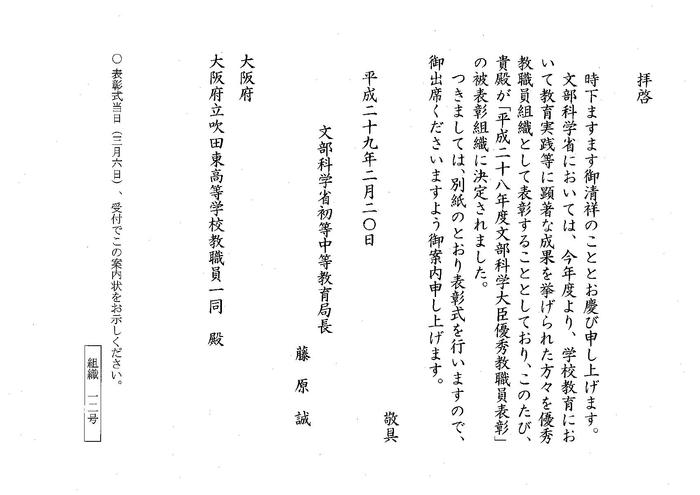 拝啓
時下ますます御清祥のこととお慶び申し上げます。
文部科学省においては、今年度より、学校教育にお
いて教育実践等に顕著な成果を挙げられた方々を優秀
教職員組織として表彰することとしており、このたび、
貴殿が「平成二十八年度文部科学大臣優秀教職員表彰」
の被表彰組織に決定されました。
つきましては、別紙のとおり表彰式を行いますので、
御出席くださいますよう御案内申し上げます。
敬具
平成二十九年二月二〇日
文部科学省初等中等教育局長
藤原 誠
大阪府
大阪府立吹田東高等学校教職員一同 殿
○ 表彰式当日（三月六日）、受付でこの案内状をお示しください。
組織 一二号